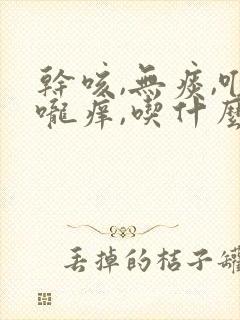 幹咳,無痰,
嚨痒,喫什麼
丟掉的桔子罐